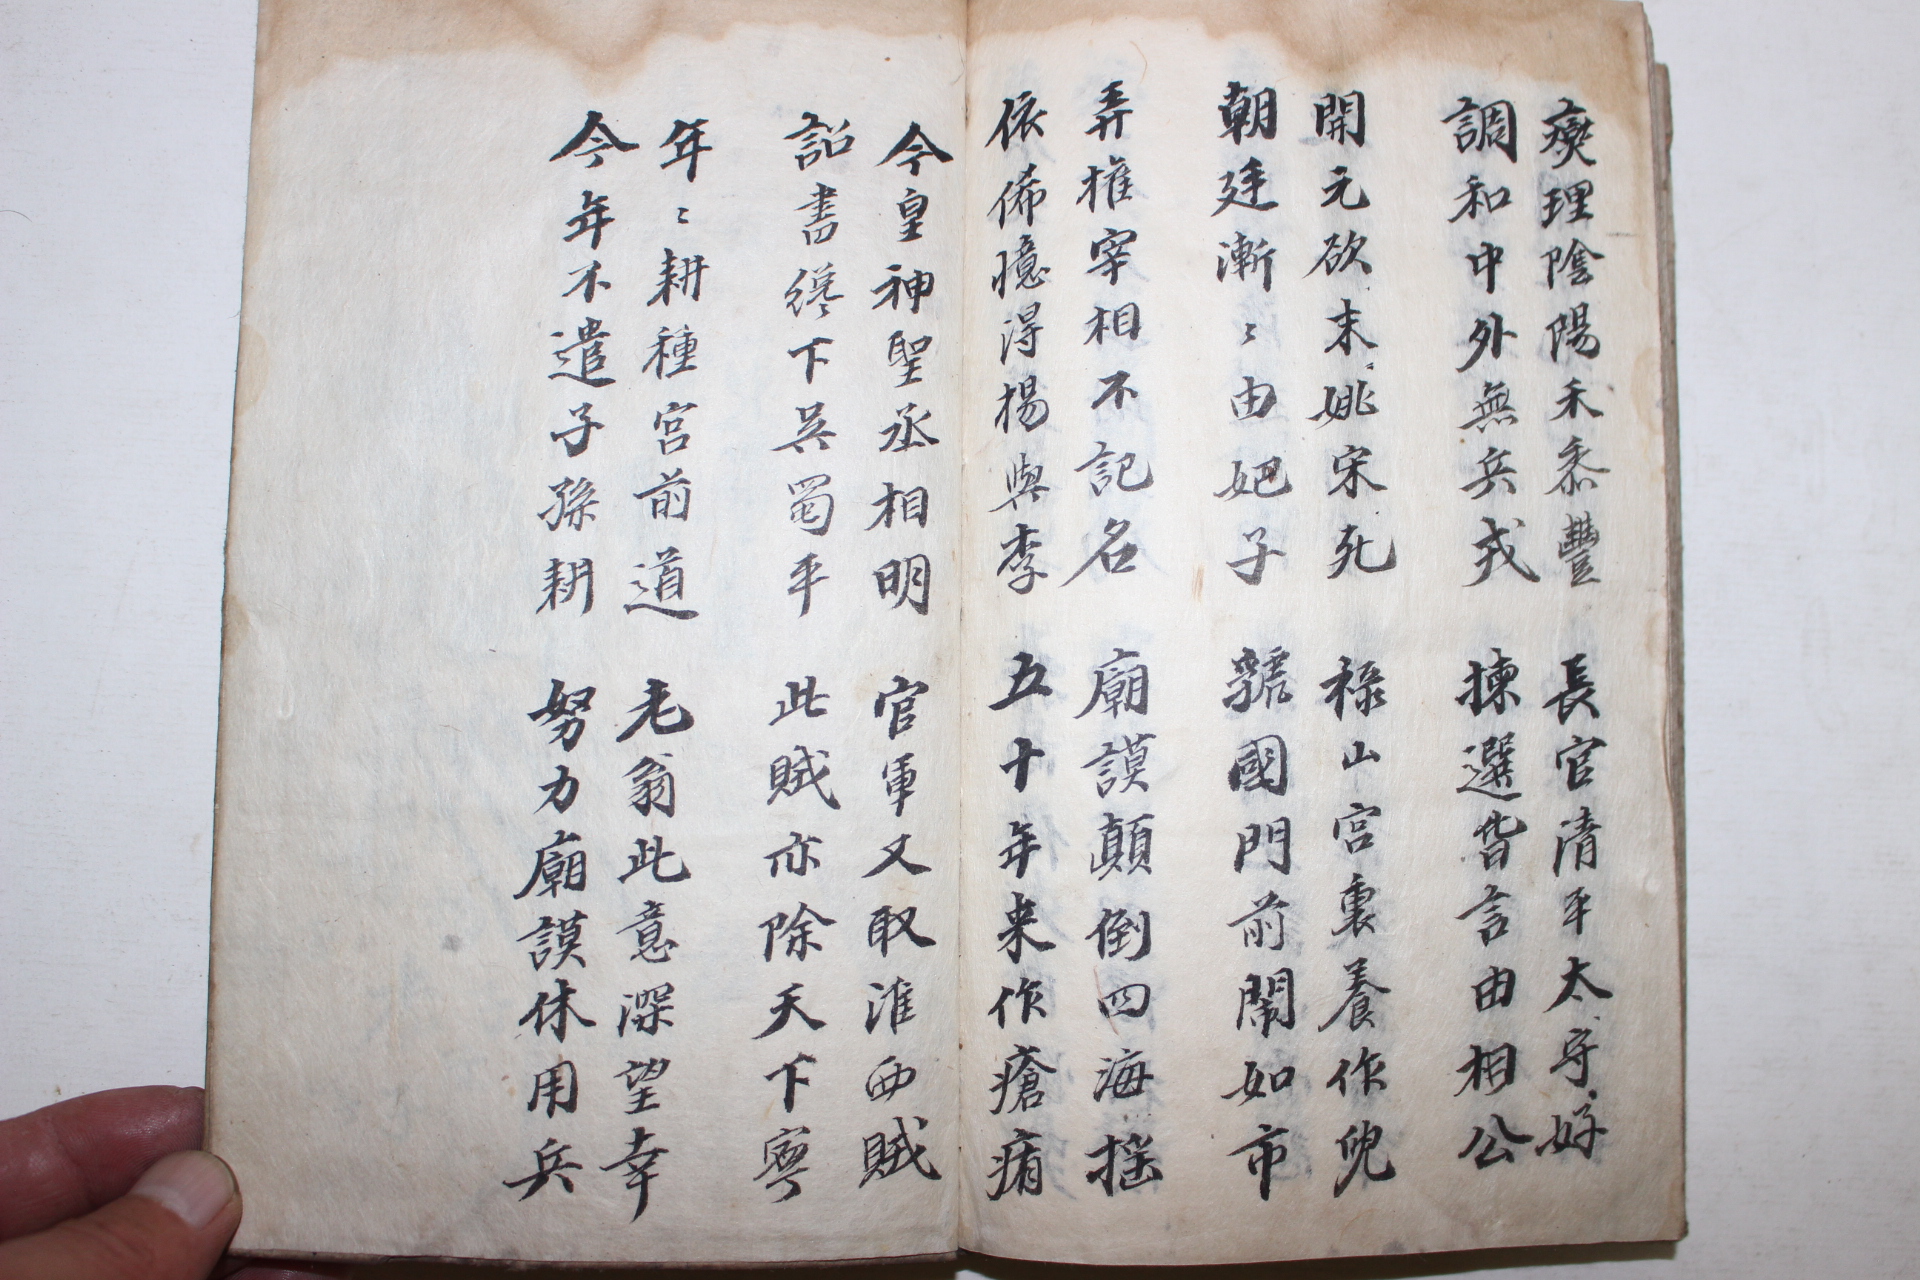 燮理陰陽禾黍豐 長官清平太守好
調和中外無兵戎 揀選皆言由相公
開元欲末姚宋死 祿山宮裏養作兒
朝廷漸〻由妃子 虢國門前鬧如市
弄權宰相不記名 廟謨顛倒四海搖
依俙憶得楊與李 五十年来作瘡痏
今皇神聖丞相明 官軍又取淮西賊
詔書纔下吳蜀平 此賊亦除天下寧
年〻耕種宮前道 老翁此意深望幸
今年不遣子孫耕 努力廟謨休用兵